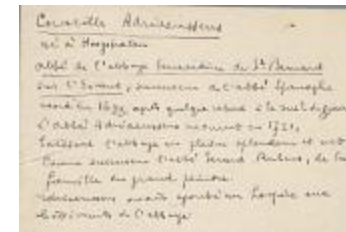 Corneille Adriaenssens
né à Hoogstraten
abbé de l'abbaye de St Bernard
sur l'Escaut, successeur de l'abbé
mort en 1699, après quelque
L'abbé Adriaenssens mourut en 1721,
laissant l'abbaye en pleine splendeur et eut
comme successeur l'abbé Gerard Rubens, de la
famille du grand peintre.
Adriaenssens avait ajouté un aux
bâtiments de l'abbaye